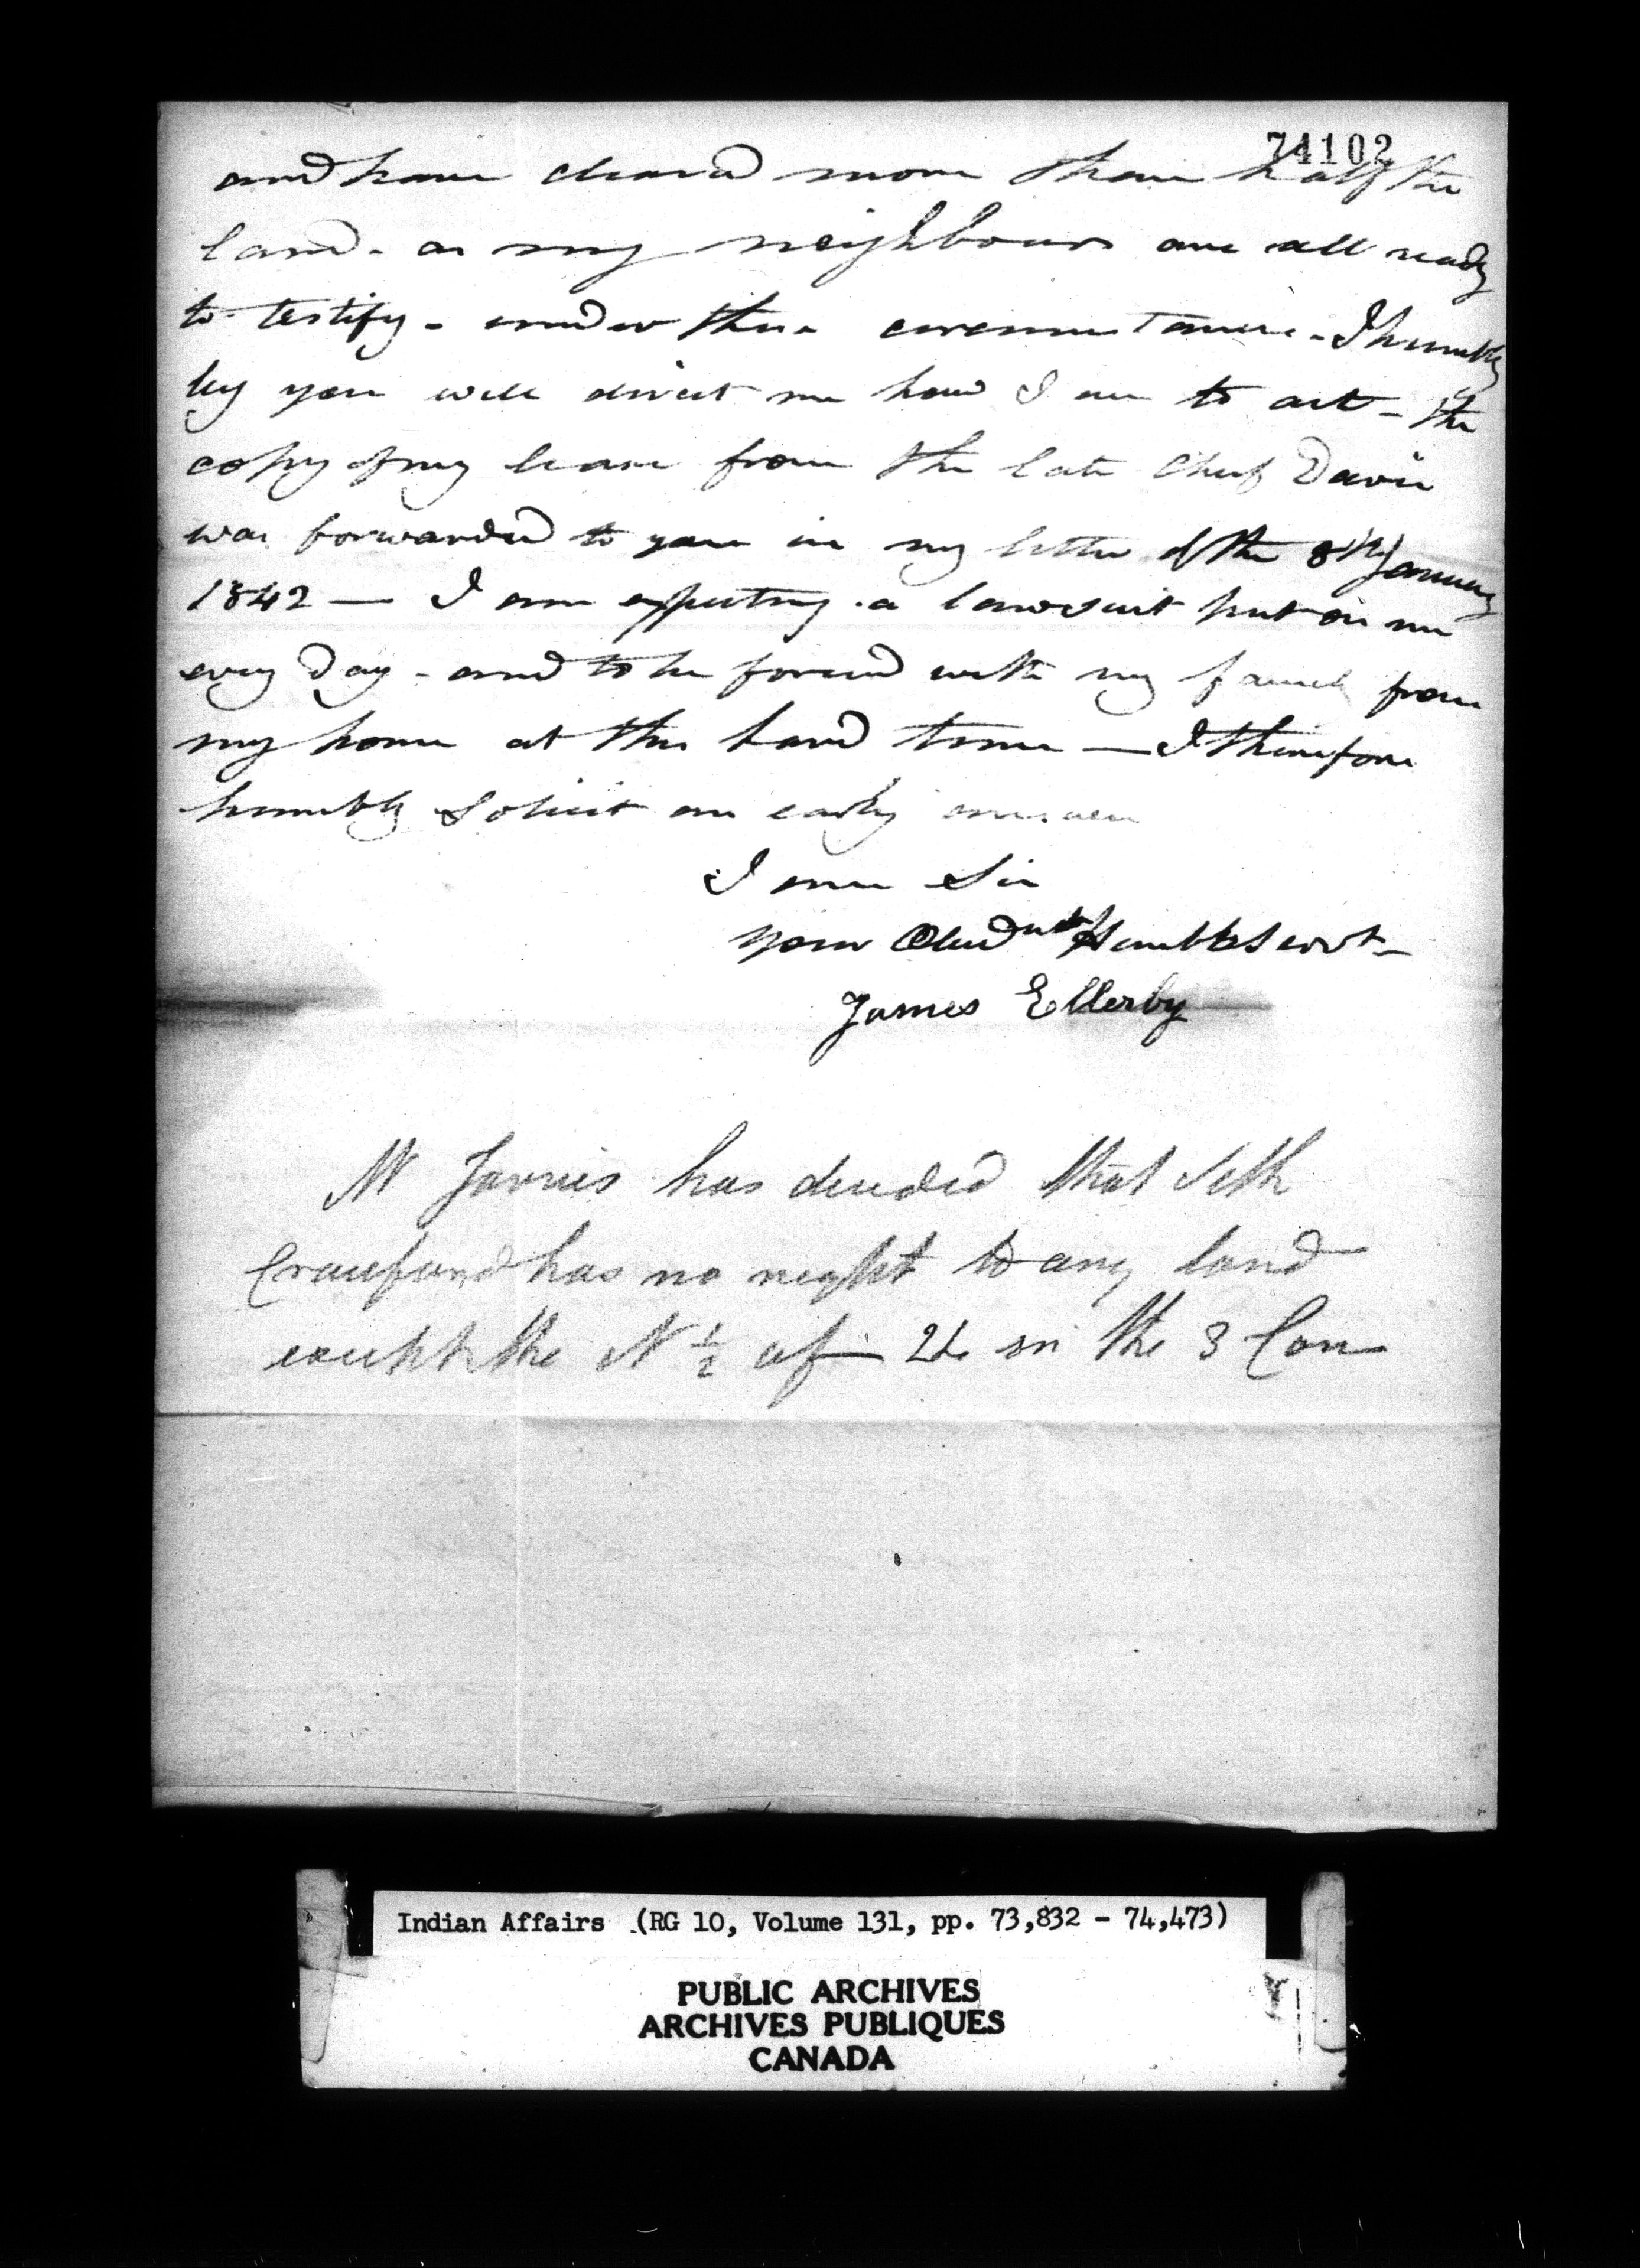 74102
and have cleard more than half the
land - as my neighbours are all ready
to testify - under these circumstances - I humbly
beg you will direct me how I am to act - the
copy of my lease from the late Chief Davis
was forwarded to you in my letter of the 8th January
1842 — I am expecting a lawsuit put on me
every Day - and to be forced with my family from
my home at this hard time — I therefore
humbly Solicit an early answer
I am Sir
your Obed nt Humble Servt -
James Ellerby
Mr Jarvis has decided that Seth
Crawford has no right to any land
except the N ½ of 24 in the 3 Con
Indian Affairs (RG 10, Volume 131, pp. 73,832 - 74,473)
PUBLIC ARCHIVES
ARCHIVES PUBLIQUES
CANADA